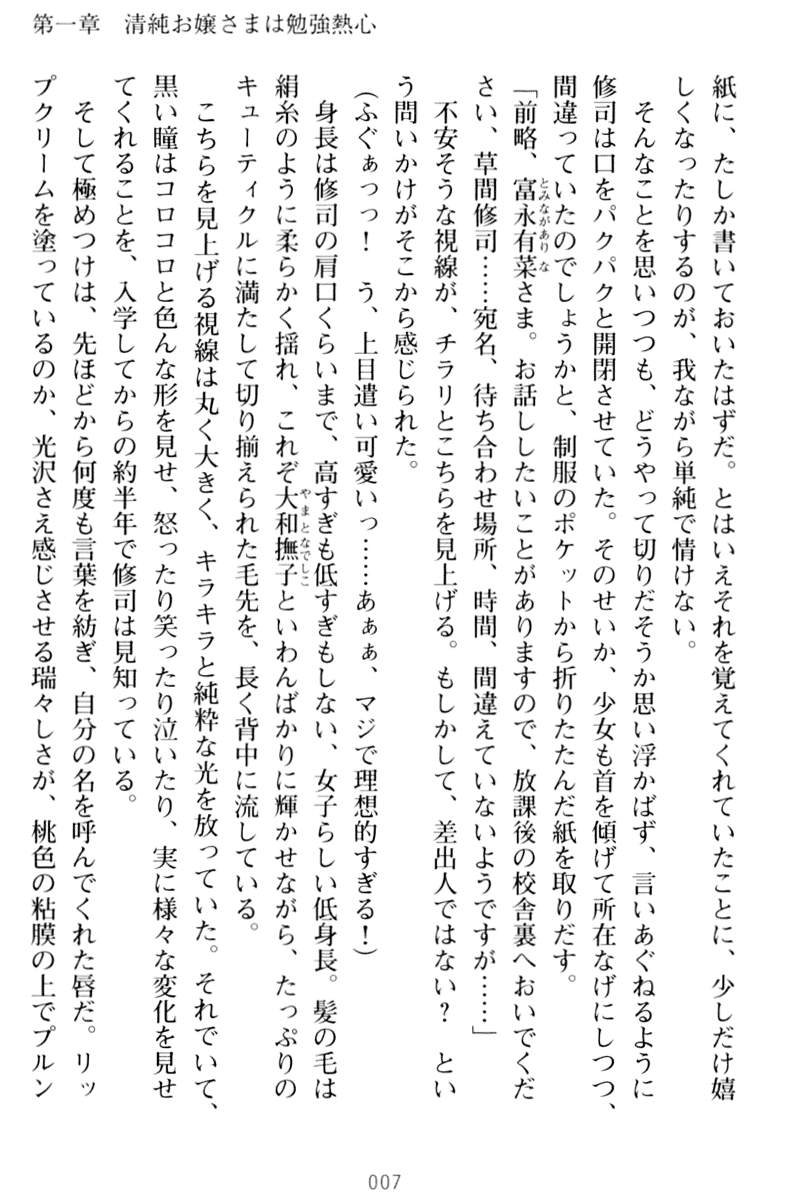 第一章　清純お嬢さまは勉強熱心
紙に、たしか書いておいたはずだ。とはいえそれを覚えてくれていたことに、少しだけ嬉
しくなったりするのが、我ながら単純で情けない。
　そんなことを思いつつも、どうやって切りだそうか思い浮かばず、言いあぐねるように
修司は口をパクパクと開閉させていた。そのせいか、少女も首を傾げて所在なげにしつつ、
間違っていたのでしょうかと、制服のポケットから折りたたんだ紙を取りだす。
「前略、富永有菜さま。お話ししたいことがありますので、放課後の校舎裏へおいでくだ
さい、草間修司……宛名、待ち合わせ場所、時間、間違えていないようですが……」
　不安そうな視線が、チラリとこちらを見上げる。もしかして、差出人ではない？　とい
う問いかけがそこから感じられた。
（ふぐぁっっ！　う、上目遣い可愛いっ……あぁぁ、マジで理想的すぎる！）
　身長は修司の肩口くらいまで、高すぎも低すぎもしない、女子らしい低身長。髪の毛は
絹糸のように柔らかく揺れ、これぞ大和撫子といわんばかりに輝かせながら、たっぷりの
キューティクルに満たして切り揃えられた毛先を、長く背中に流している。
　こちらを見上げる視線は丸く大きく、キラキラと純粋な光を放っていた。それでいて、
黒い瞳はコロコロと色んな形を見せ、怒ったり笑ったり泣いたり、実に様々な変化を見せ
てくれることを、入学してからの約半年で修司は見知っている。
　そして極めつけは、先ほどから何度も言葉を紡ぎ、自分の名を呼んでくれた唇だ。リッ
プクリームを塗っているのか、光沢さえ感じさせる瑞々しさが、桃色の粘膜の上でプルン
007